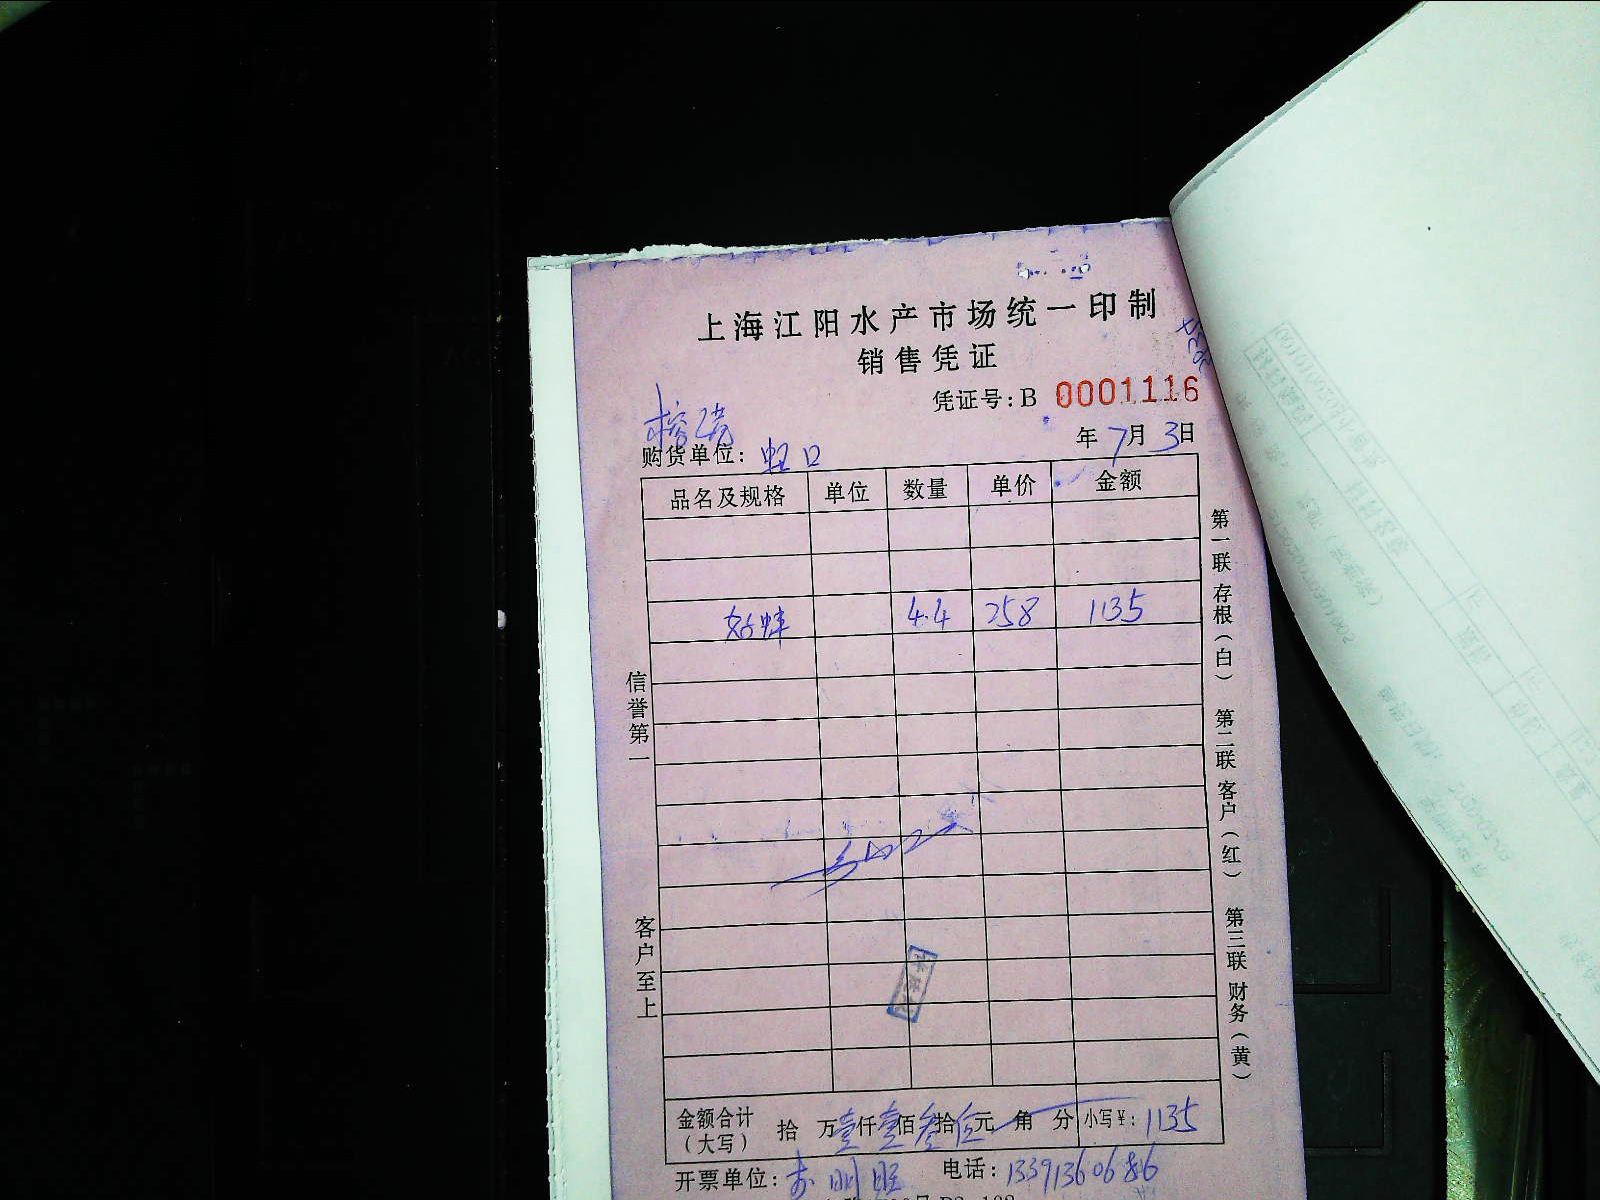 上海江阳水产市场统一印制
销售凭证
凭证号:B 0001116
购货单位: 虹口
年 7月 3日
品名及规格 单位 数量 单价 金额
4.4 258 1135
信誉第一
客户至上
第一联 存根(白) 第二联 客户(红) 第三联 财务(黄)
金额合计(大写) 拾 万壹仟壹佰叁拾伍元 角 分 小写¥: 1135
开票单位: 电话: 13391360686